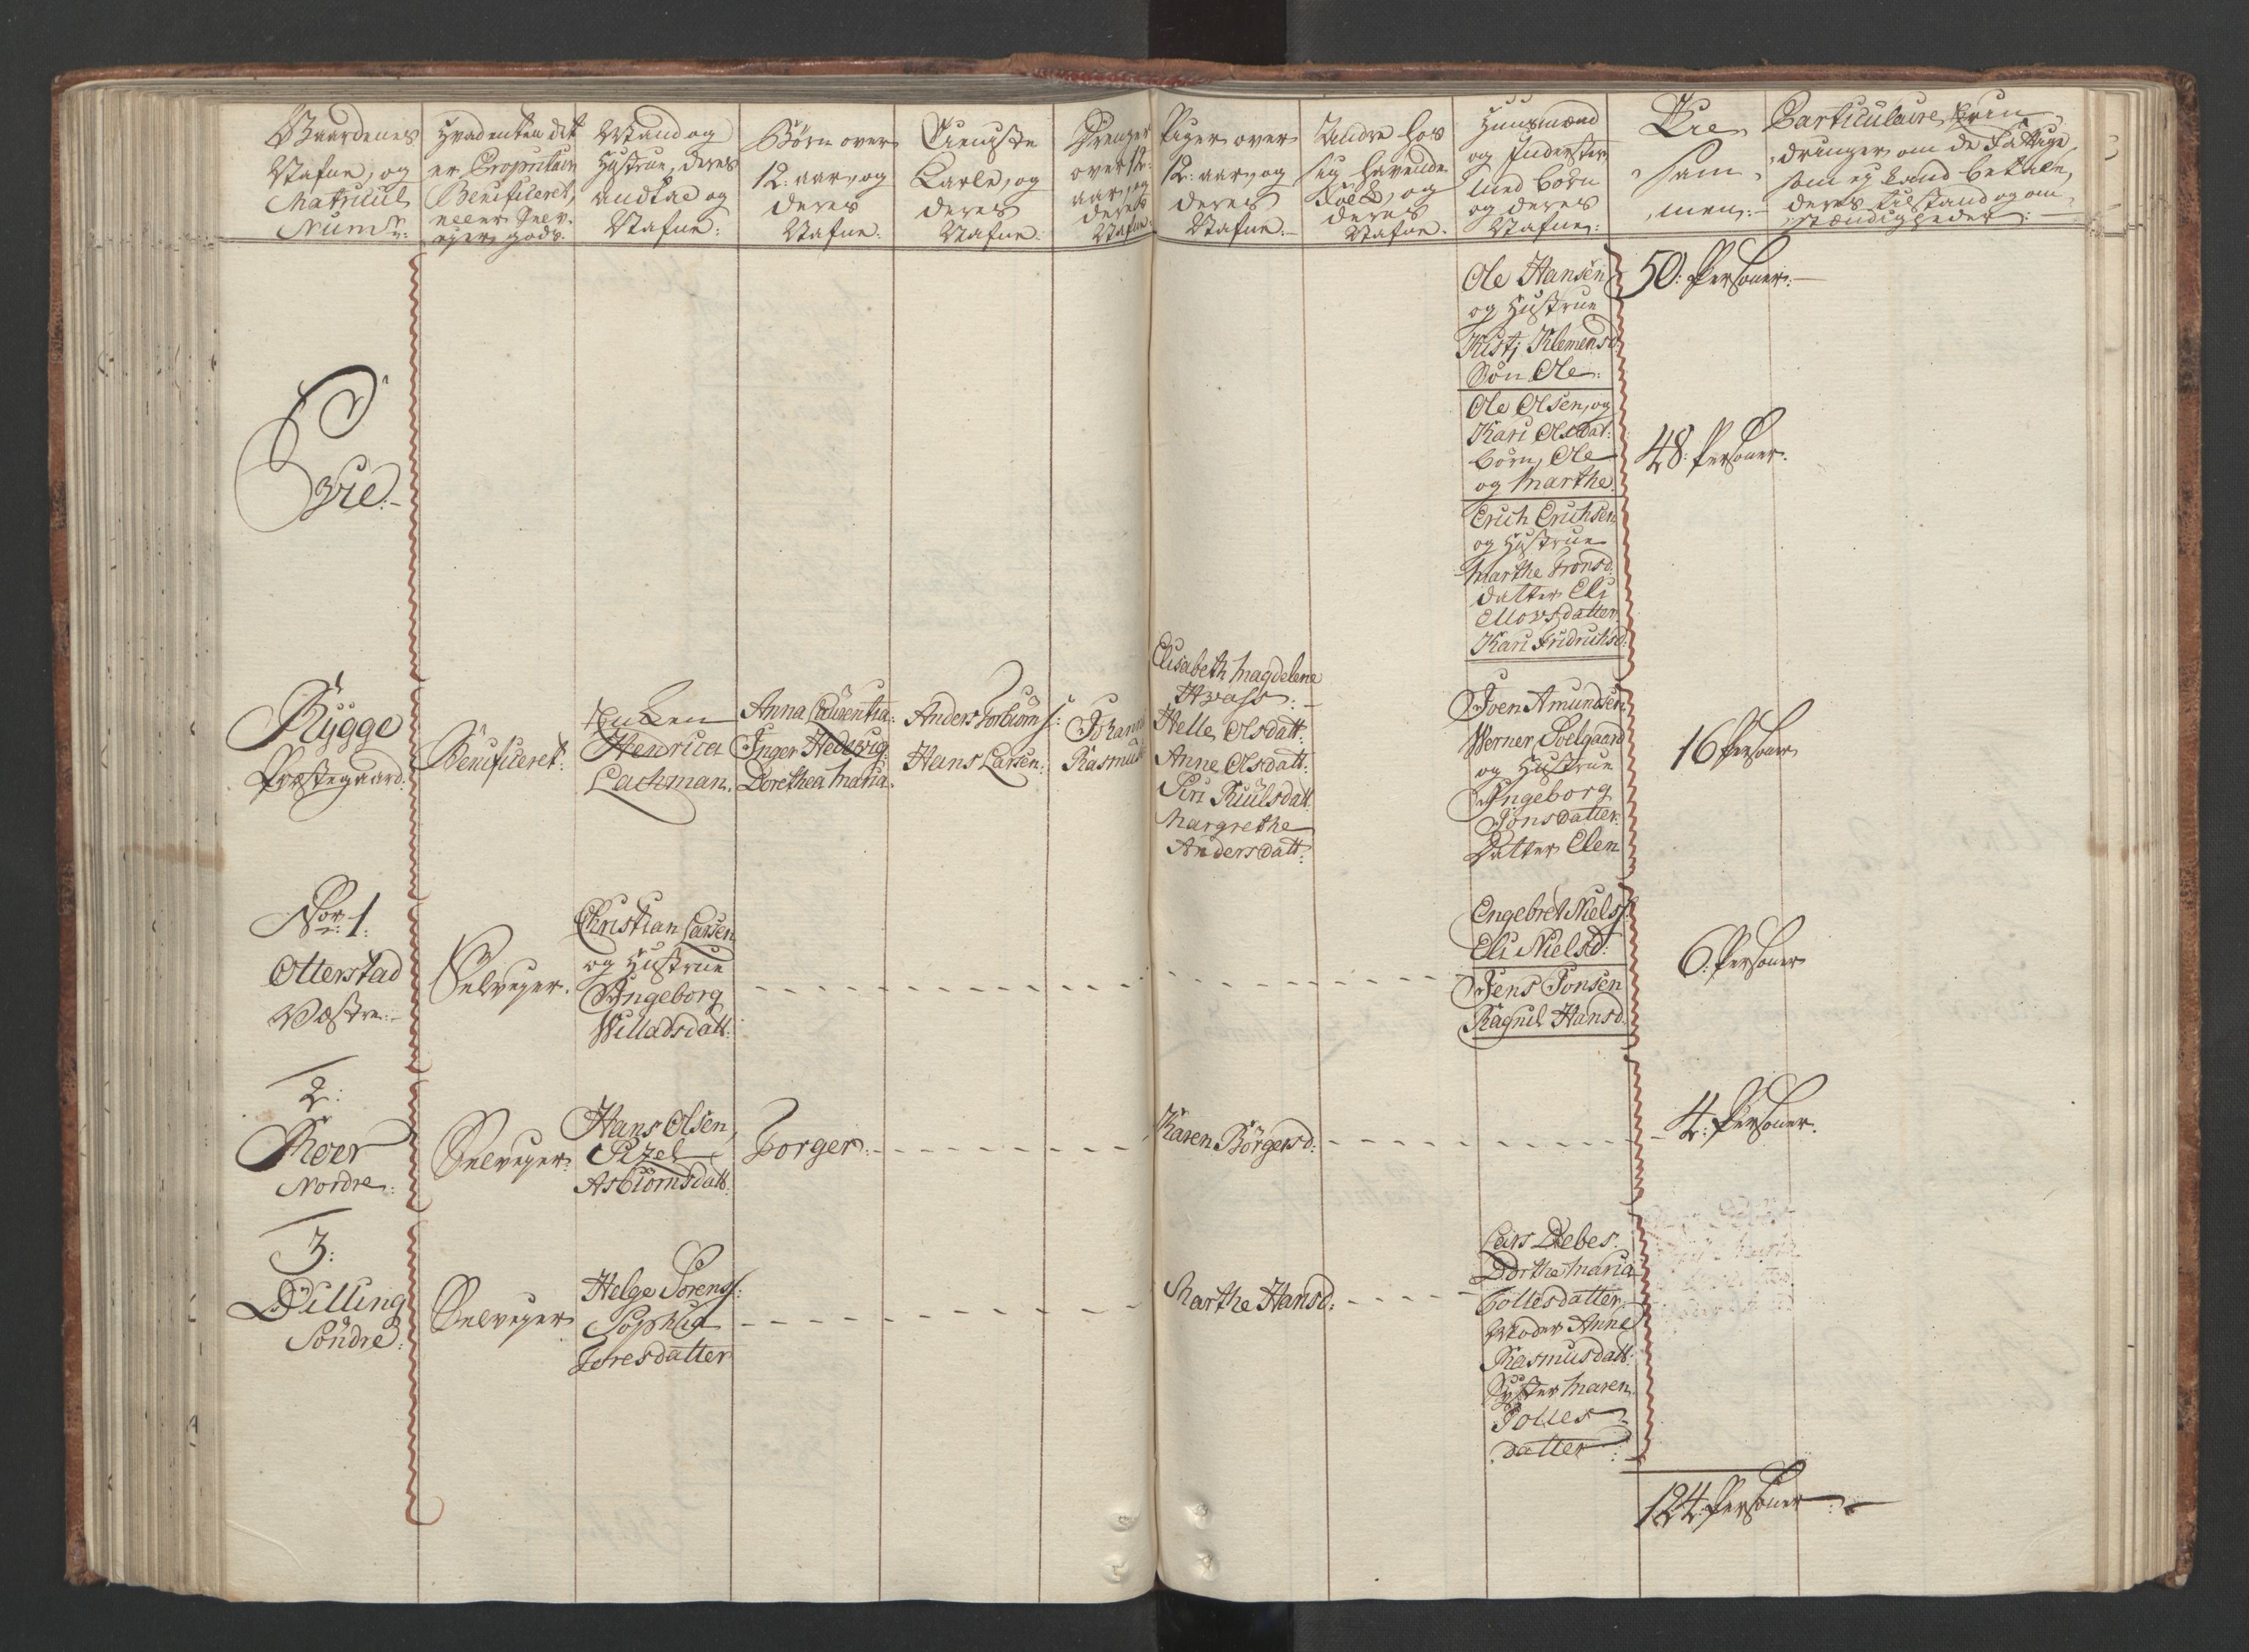 Gaardenes
Nafne, og
Matricul
Num:
Hvadenten det
er Proprietair
Beneficeret,
eller Selv-
ejer gods.
Mand og
Hustrue, deres
andtal og
Nafne:
Børn over
12. aar, og
deres
Nafne.
Tieneste
Karle, og
deres
Nafne.
Drenge
over 12.
aar, og
deres
Nafne.
Piger over
12. aar, og
deres
Nafne.
Andre hos
sig havende
Folk, og
deres
Nafne.
Huusmænd
og Inderster
med børn
og deres
Nafne:
Til-
sam-
men:
Particulaire Erin-
dringer om de Fattige
som ej kand betale,
deres tilstand og om-
stændigheder:
Ole Hansen
og Hustrue
Kisti Klemensd
Søn Ole:
50: Personer:
Ole Olsen, og
Kari Olsdat:
børn, Ole
og Marthe.
48: Personer.
Erich Erichsen
og Hustrue
Marthe Tronsd:
datter Eli
datter
Kari Fridrichsd:
Rygge
Præstegaard.
Beneficeret:
Enken
Hendrica
Lachman.
Anna Laurentia:
Inger Hedevig:
Dorethea Maria.
Anders Torbiørns:
Hans Larsen:
Johannes
Rasmus
Elisabeth Magdelene
Hwass:
Helle Olsdatt:
Anne Olsdatt:
Siri Riulsdatt
Margrethe
Andersdatt:
Joen Amundsen
Werner Soelgaard
og Hustrue
Ingeborg
Jonsdatter:
Datter Elen
16 Personer
No: 1.
Otterstad
Westre:
Selvejer.
Christian Larsen
og Hustrue
Ingeborg
Willadsdatt:
Engebret Niels:
Eli Nielsd:
Jens Jonsen
Ragnil Hansd:
6: Personer
2:
Roer
Nordre:
Selvejer:
Hans Olsen,
Sizel
Asbiørnsdatt:
Torger:
Karen Børgersd:
4: Personer.
3:
Dilling
Søndre:
Selvejer
Helge Sorens:
Sophia
Toresdatter
Marthe Hansd:
Lars Debes.
Dorthe Maria
Tollesdatter:
Moder Anne
Rasmusdatt:
Syster Maren
Tolles
datter:
124: Personer